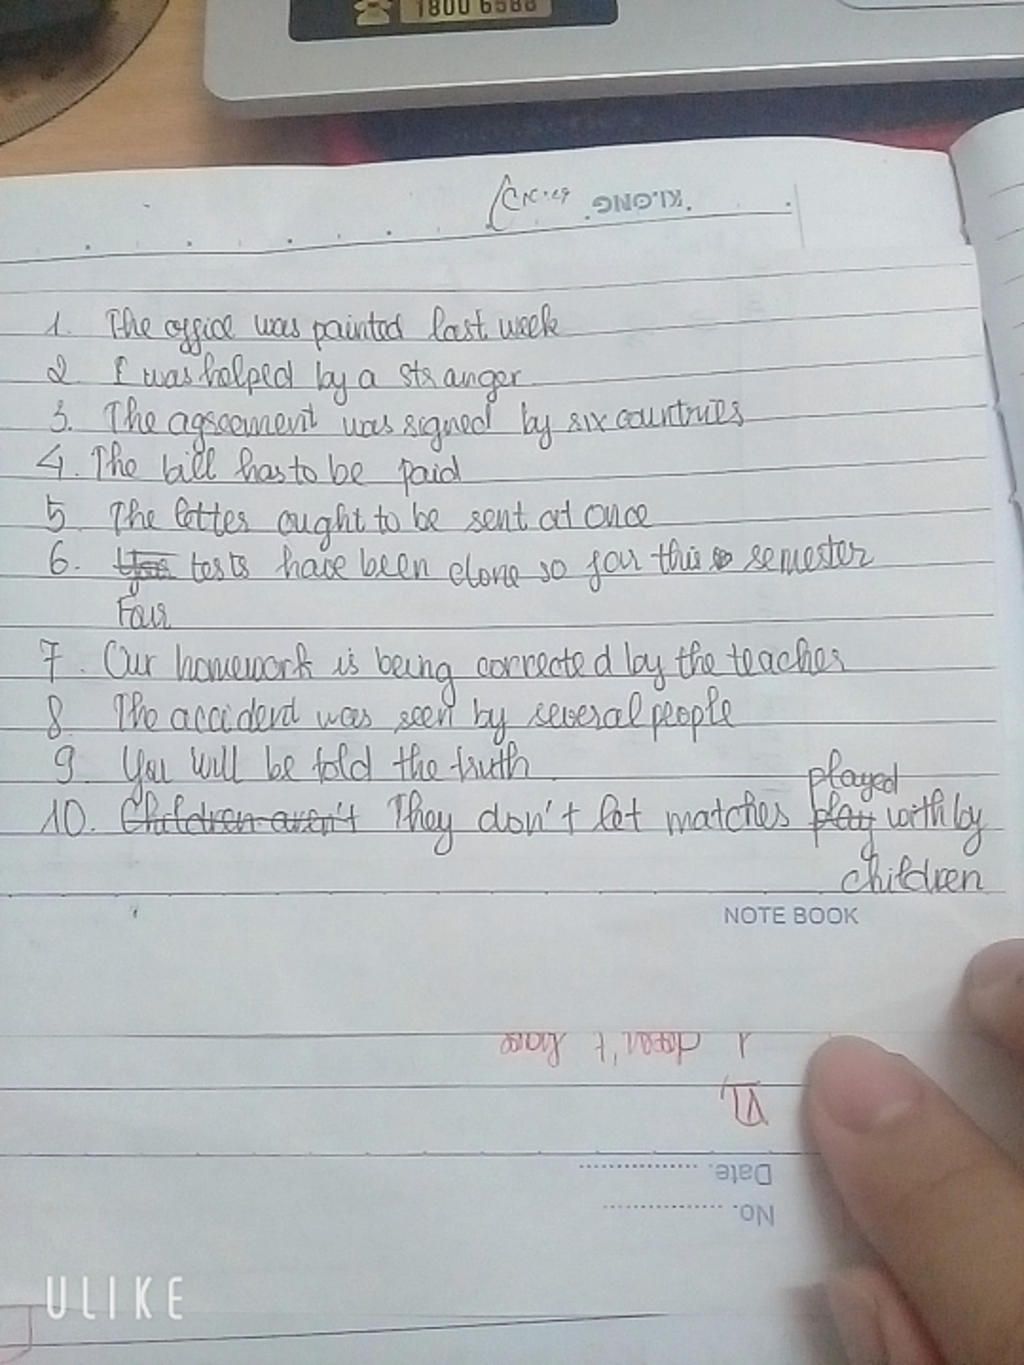 1800 6588
KLONG
1. The office was painted last week
2. I was helped by a stranger
3. The agreement was signed by six countries
4. The bill has to be paid
5. The letter ought to be sent at once
6. tests have been done so far this semester
Four
7. Our homework is being corrected by the teacher
8. The accident was seen by several people
9. You will be told the truth
played
10. Children aren't They don't let matches play with by
children
NOTE BOOK
I doesn't have
VI,
Date.
No.
ULIKE